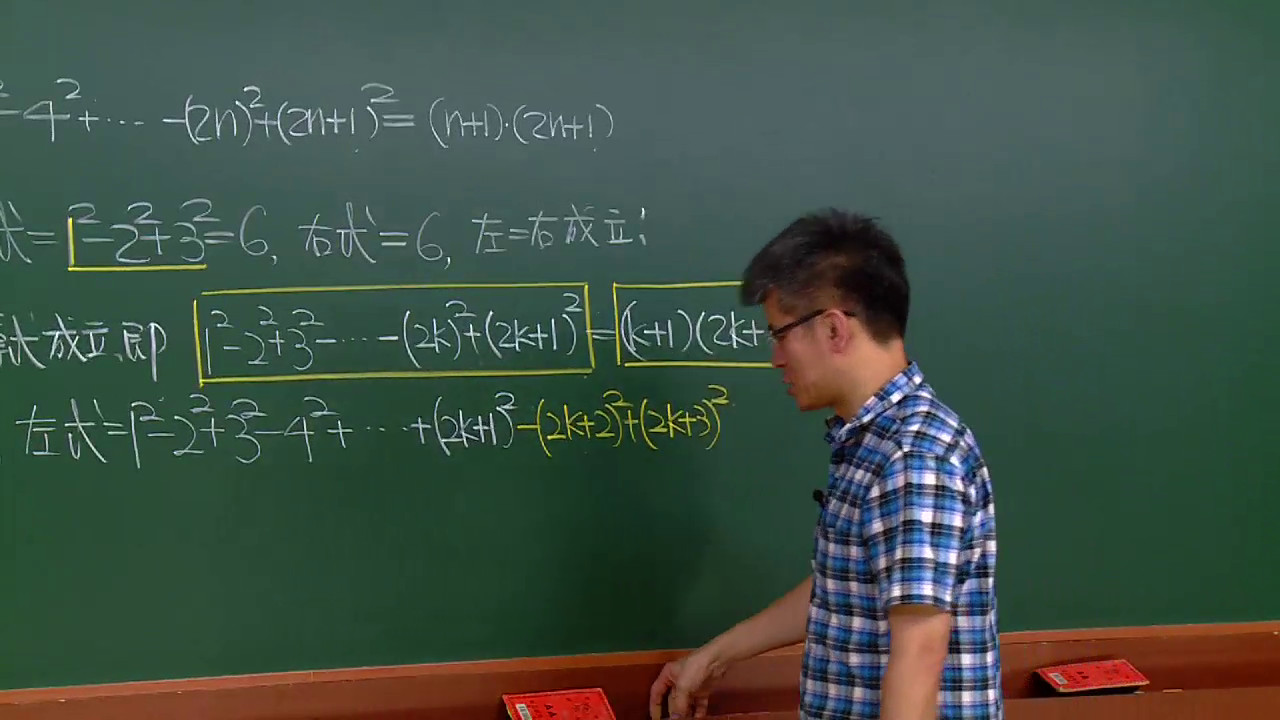 -4²+⋯ -(2n)²+(2n+1)²=(n+1)·(2n+1)
式=1²-2²+3²=6, 右式=6, 左=右成立;
式成立,即 1²-2²+3²-⋯-(2k)²+(2k+1)²=(k+1)(2k+
左式=1²-2²+3²-4²+⋯+(2k+1)²-(2k+2)²+(2k+3)²